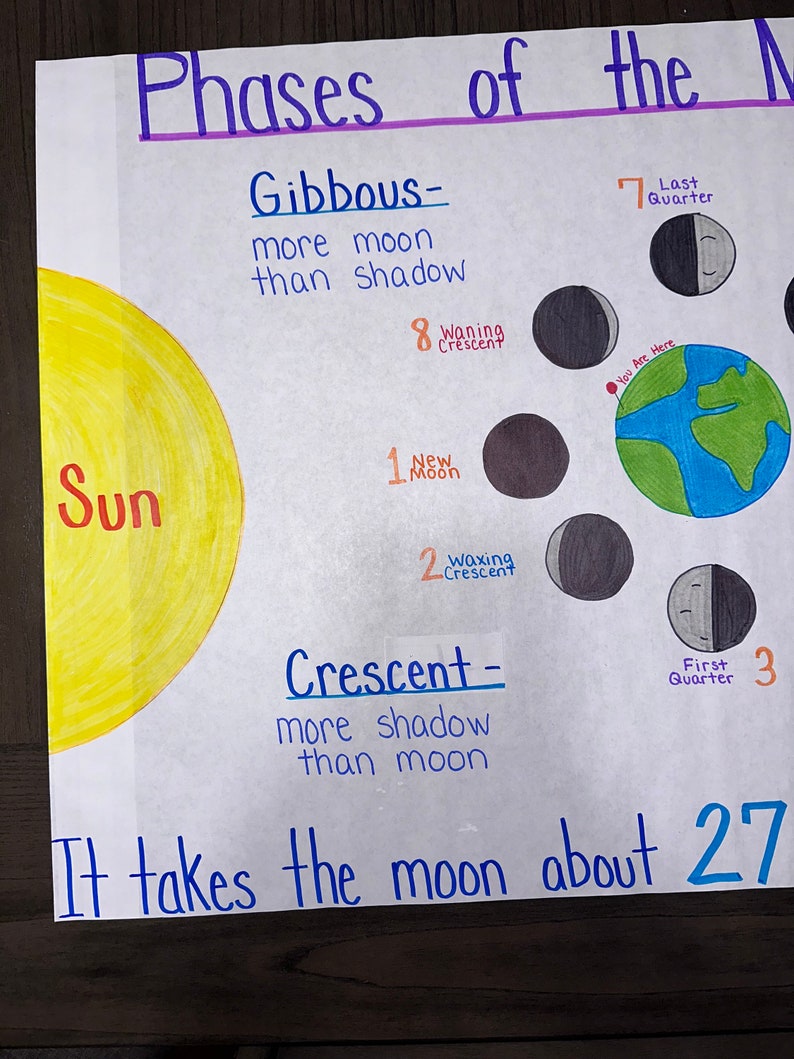 Phases of the
Gibbous-
more moon
than shadow
7 Last
Quarter
8 Waning
Crescent
You Are Here
1 New
Moon
Sun
2 Waxing
Crescent
First
Quarter 3
Crescent-
more shadow
than moon
It takes the moon about 27